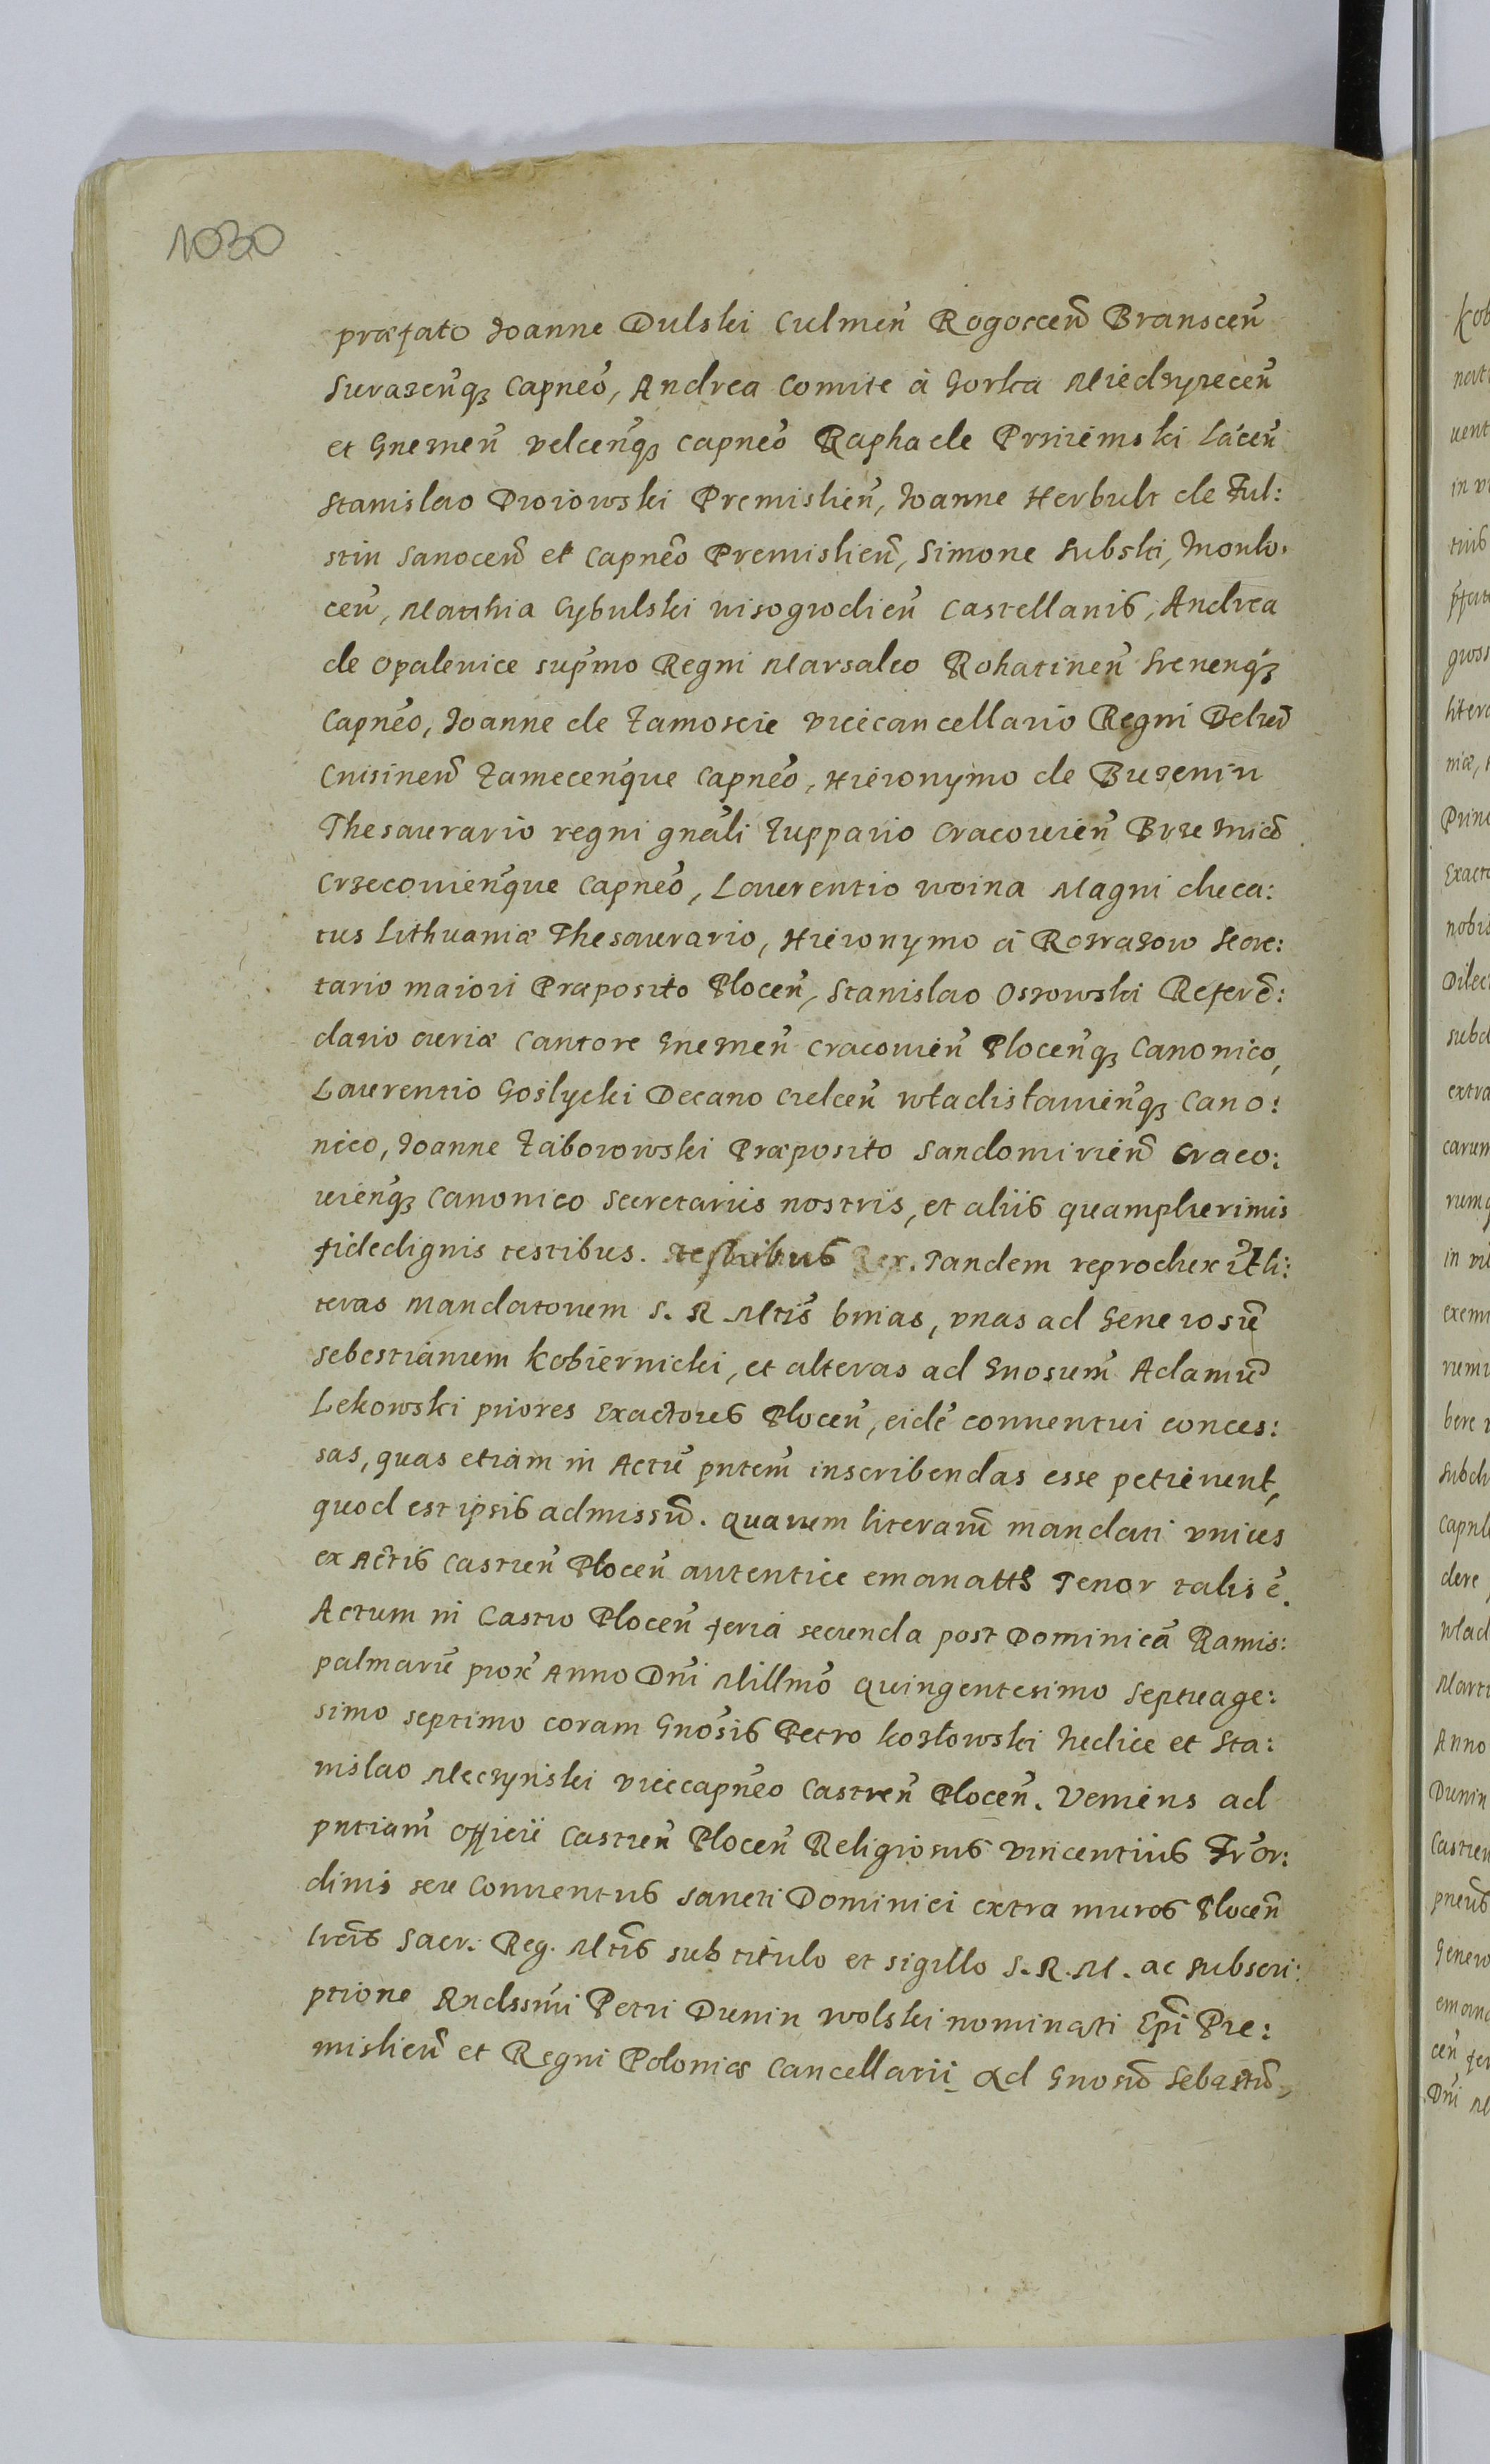 1030
præfato Joanne Dulski Culmen̄ Rogoscen̄ Branscen̄
Surazen̄qʒ Capnēo, Andrea Comite à Gorka Miedzyrecen̄
et Gnemen̄ velcen̄qʒ capnēo Raphaele Prziiemski Lācen̄
Stanislao Droiowski Premislien̄, Joanne Herbult de Ful:
stin Sanocen̄ et Capnēo Premislien̄, Simone Subski, Inoulo:
cen̄, Matthia Cybulski visogrodien̄ Castellanis, Andrea
de Opalenice sup̄mo Regni Marsalco Rohatinen̄ Srenenqʒ
Capnēo, Joanne de Zamoscie vicecancellario Regni Belzen̄
Cnisinen̄ Zamecen̄que Capnēo, Hieronymo de Buzenin
Thesaurario regni gnāli Zuppario Cracouien̄ Brzeznicen̄
Crzecouien̄que Capnēo, Laurentio woina Magni duca:
tus Lithuaniæ Thesaurario, Hieronymo à Rozrazow Secre:
tario maiori Præposito Plocen̄, Stanislao Ossowski Referē:
dario curiæ Cantore Gnemen̄ Cracouien̄ Plocen̄qʒ Canonico,
Laurentio Goslycki Decano Culcen̄ wladislauien̄qʒ Cano:
nico, Joanne Zaborowski Præposito Sandomirien̄ Craco:
uien̄qʒ Canonico Secretariis nostris, et aliis quamplurimis
fidedignis testibus. testibus Rex. Tandem reproduxit li:
teras mandatorum S. R Mtis̄ binas, vnas ad Generosū
Sebestianum Kobiernicki, et alteras ad Gnosum̄ Adamū
Lekowski priores Exactores Plocen̄, eidē conuentui conces:
sas, quas etiam in Actū pntem̄ inscribendas esse petierunt,
quod est ipsis admissū. quarum literarū mandati vnius
ex Actis Castren̄ Plocen̄ autentice emanatts Tenor talis ē.
Actum in Castro Plocen̄ feria secunda post Dominicā Ramis:
palmarū prox̄ Anno Dnī Millmō quingentesimo Septuage:
simo septimo coram Gnōsis Petro kozłowski Iudice et Sta:
nislao Meczynski vicecapnēo Castren̄ Plocen̄. Veniens ad
pntiam̄ officii Castren̄ Plocen̄ Religiosus vincentius Fr̄ or:
dinis seu Conuentus Sancti Dominici extra muros Plocen̄
lrās̄ Sacr: Reg. Mtīs sub titulo et sigillo S. R. M. ac subscri:
ptione Rndssmī Petri Dunin wolski nominati Epī Pre:
mislien̄ et Regni Poloniæ Cancellarii Ad Gnosū Sebastiū,